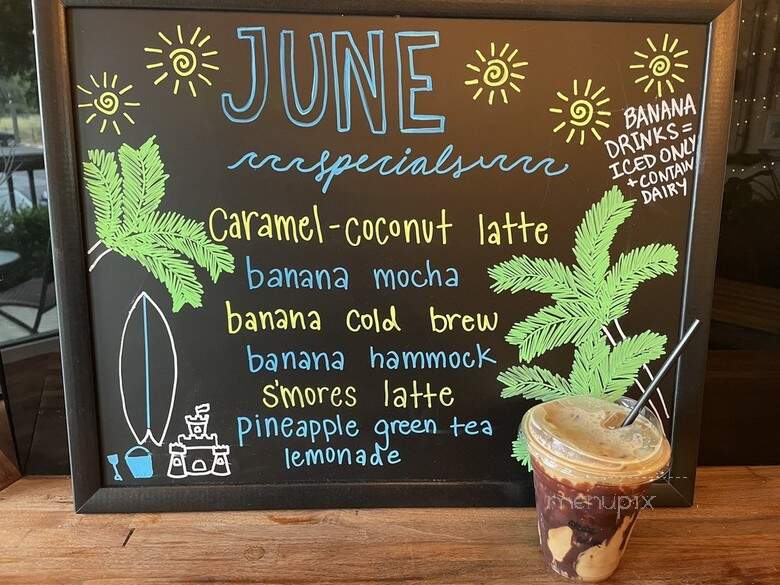 JUNE
specials
BANANA
DRINKS =
ICED ONLY
+ CONTAIN
DAIRY
Caramel-coconut latte
banana mocha
banana cold brew
banana hammock
s'mores latte
pineapple green tea
lemonade
menupix